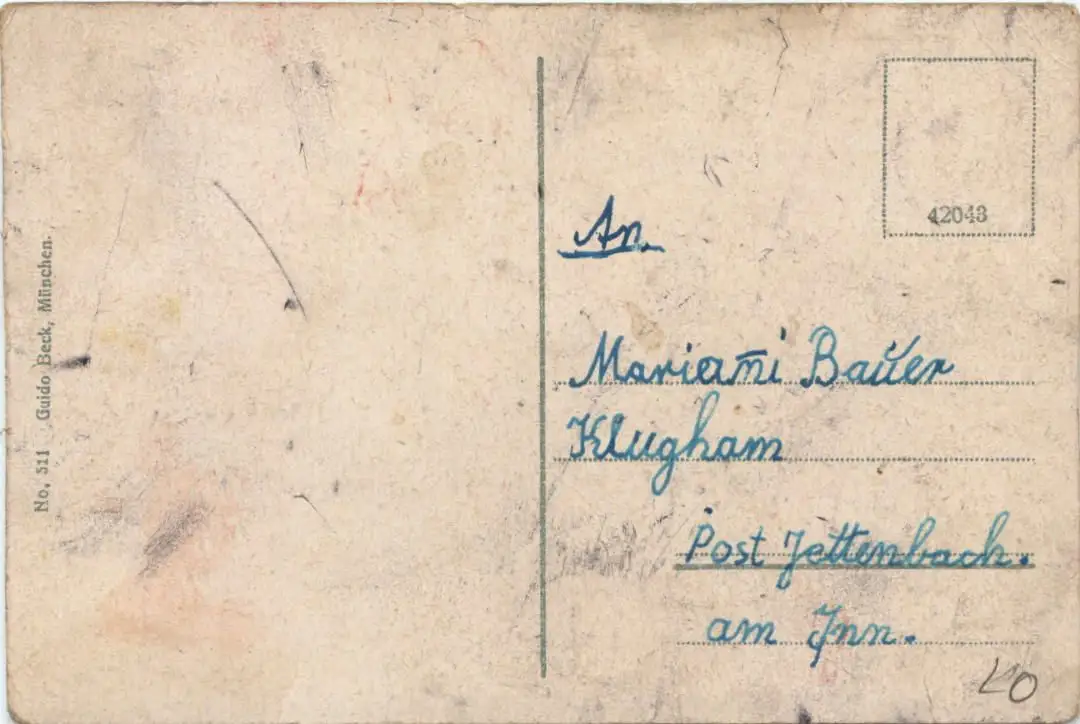 No. 511 Guido Beck, München.
42043
An.
Mariañi Baŭer
Klugham
Post Jettenbach.
am Jnn.
LO